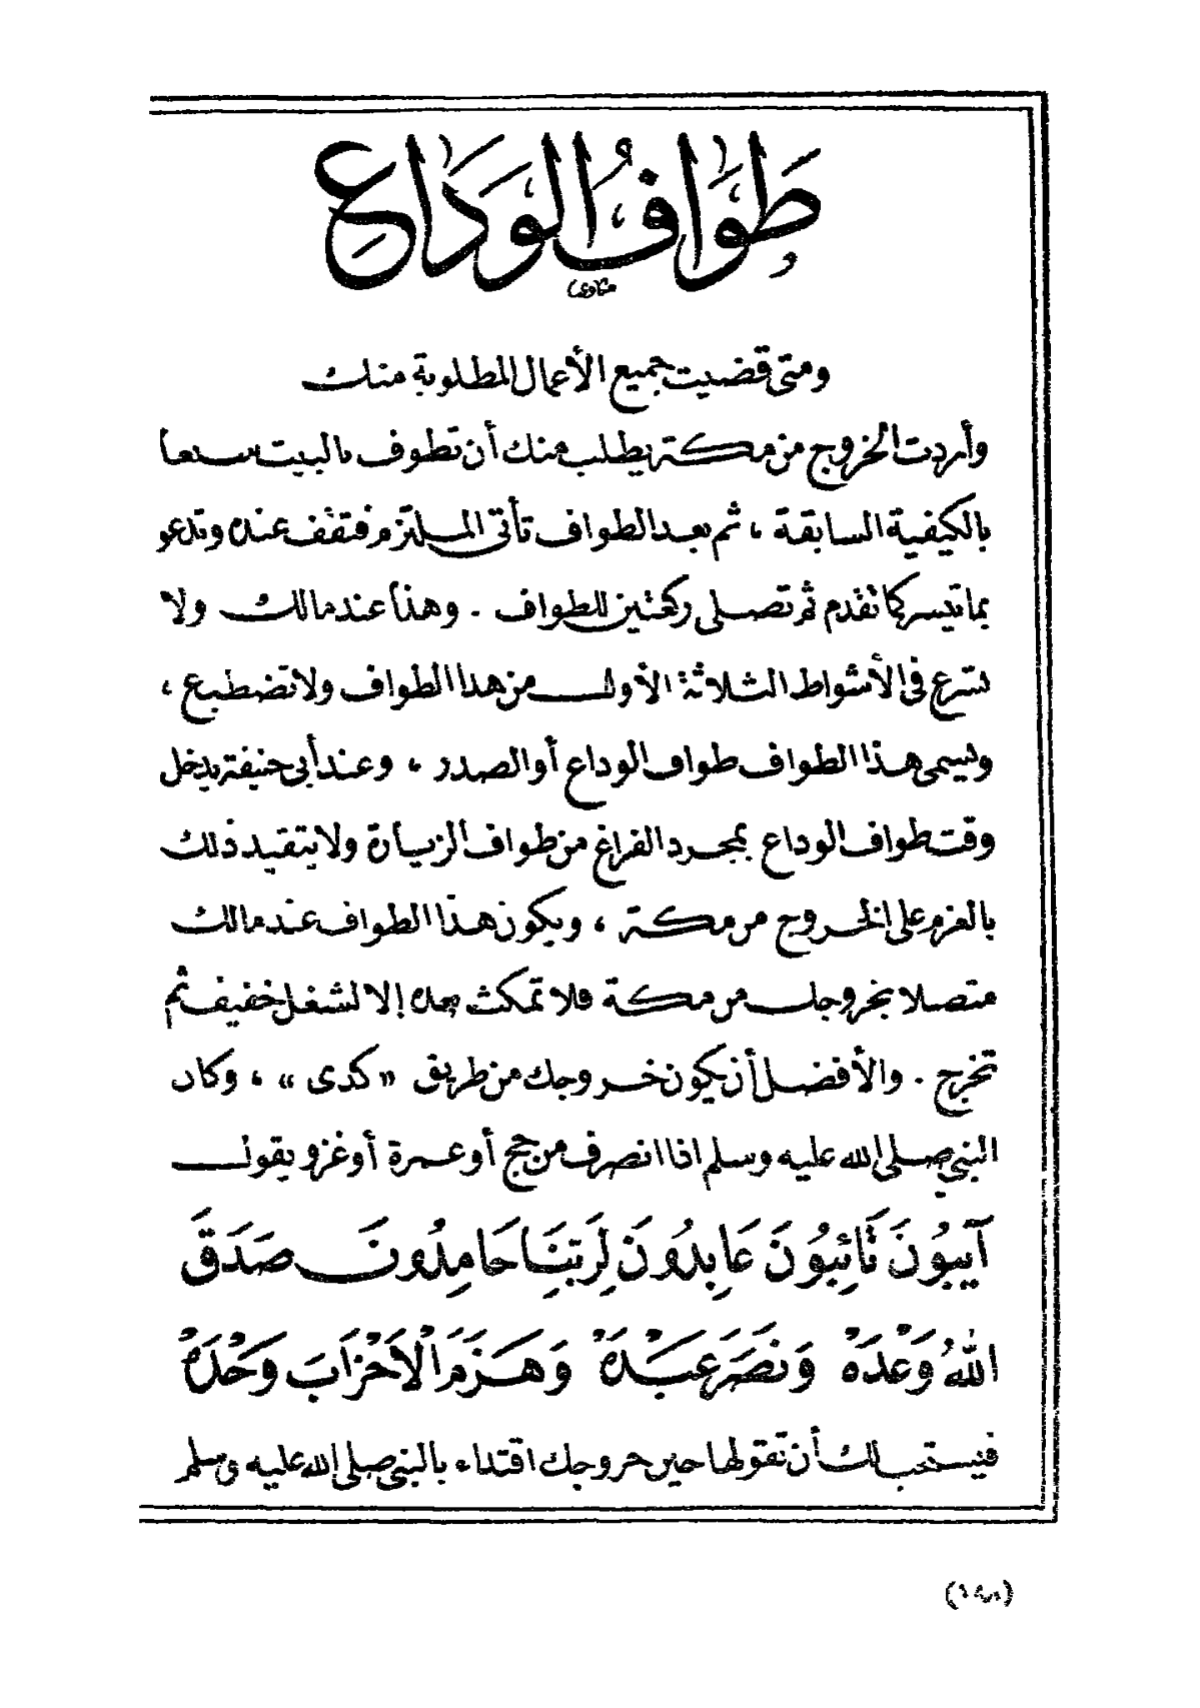 طَوَافُ الوَدَاعِ
ومتى قضيت جميع الأعمال المطلوبة منك
وأردت الخروج من مكة يطلب منك أن تطوف بالبيت سبعا
بالكيفية السابقة ، ثم بعد الطواف تأتى الملتزم فتقف عنده وتدعو
بما تيسر كما تقدم ثم تصلى ركعتين للطواف . وهذا عند مالك ولا
تسرع فى الأشواط الثلاثة الأول من هذا الطواف ولا تضطبع ،
ويسمى هذا الطواف طواف الوداع أو الصدر ، وعند أبى حنيفة يدخل
وقت طواف الوداع بمجرد الفراغ من طواف الزيارة ولا يتقيد ذلك
بالعزم على الخروج من مكة ، ويكون هذا الطواف عند مالك
متصلا بخروجك من مكة فلا تمكث بعده إلا لشغل خفيف ثم
تخرج . والأفضل أن يكون خروجك من طريق «كدى» ، وكان
النبى صلى الله عليه وسلم اذا انصرف من حج أو عمرة أو غزو يقول
آيِبُونَ تَائِبُونَ عَابِدُونَ لِرَبِّنَا حَامِدُونَ صَدَقَ
اللهُ وَعْدَهُ وَنَصَرَ عَبْدَهُ وَهَزَمَ الْأَحْزَابَ وَحْدَهُ
فيستحب لك أن تقولها حين خروجك اقتداء بالنبى صلى الله عليه وسلم